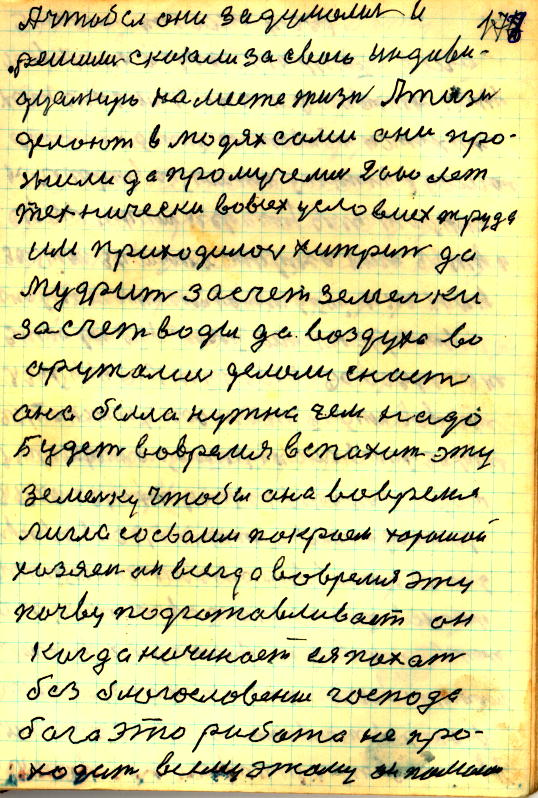 А чтобы они задумали и
решили сказали за свою индиви-
дуальнирь на месте жизн
делоют в людях сами они про-
жили да промучелис 2000 лет
технически вовсех условиех труда
им приходилос хитрит да
мудрит засчет земелки
засчет воды да воздуха во
оружалис делали снаст
она былла нужна чем надо
Будет вовремя вспахит эту
земелку чтобы она вовремя
лигла сосваим покроем хороший
хозяен он всегда вовремя эту
почву подготавливает он
когда начинает ея пахат
без благословение господа
бога это работа не про-
ходит всему этому он